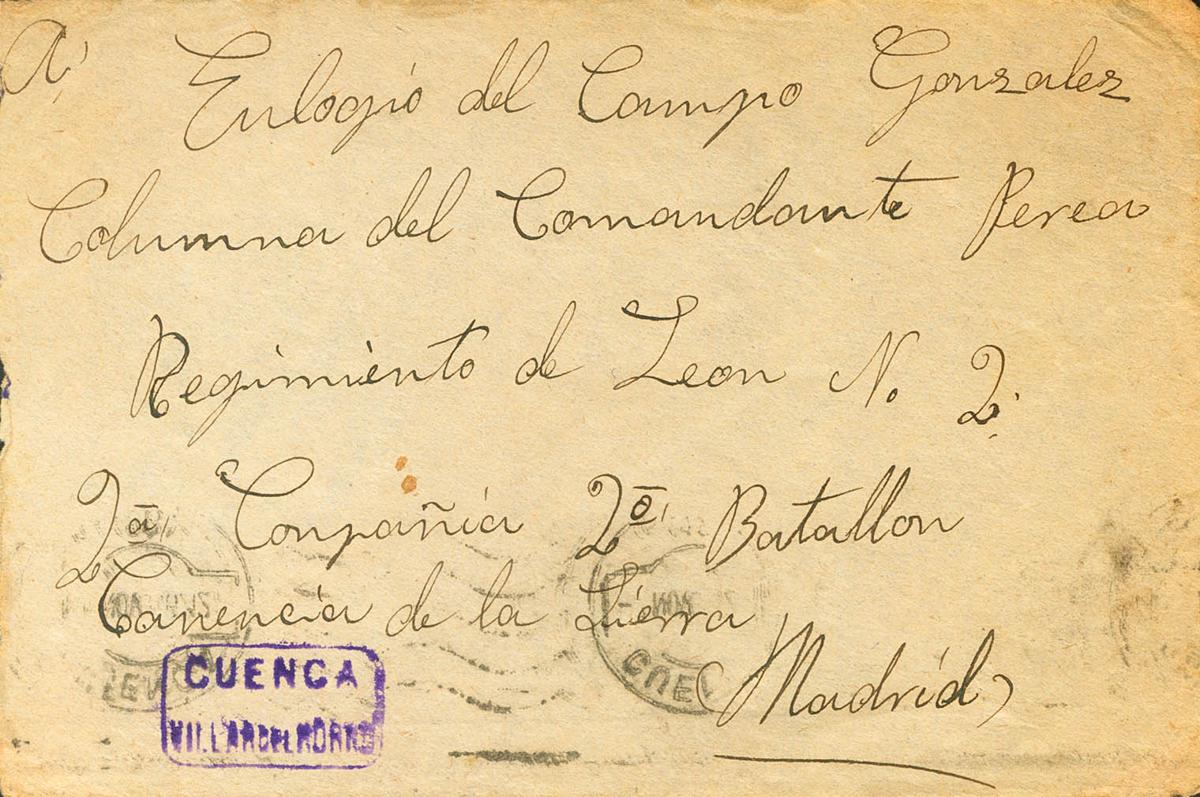 A, Eulogio del Campo Gonzalez
Columna del Comandante Perea
Regimiento de Leon N. 2.
2ª Conpañia 2º Batallon
Canencia de la Sierra
(Madrid)
CUENCA
VILLAR DEL HORNO
CUE